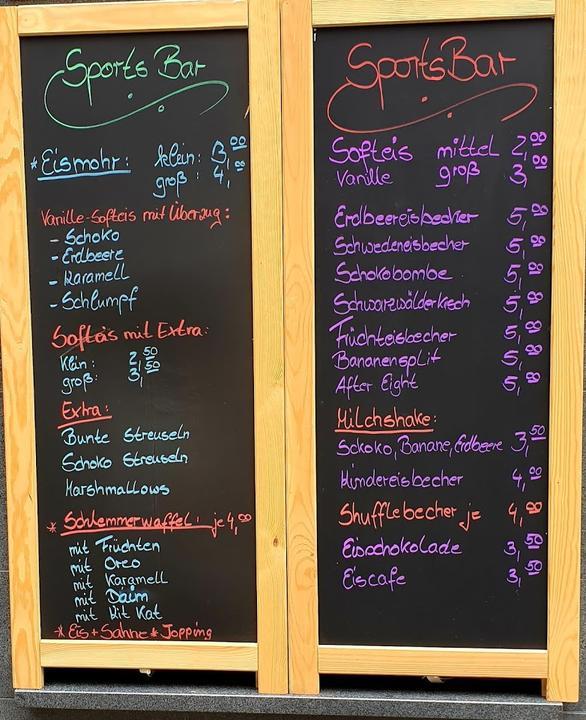 Sports Bar
* Eismohr: klein: 3,00
groß: 4,00
Vanille-Softeis mit Überzug:
- Schoko
- Erdbeere
- Karamell
- Schlumpf
Softeis mit Extra:
Klein: 2,50
groß: 3,50
Extra:
Bunte Streuseln
Schoko Streuseln
Marshmallows
* Schlemmerwaffel: je 4,00
mit Früchten
mit Oreo
mit Karamell
mit Daim
mit Kit Kat
* Eis + Sahne * Topping
SportsBar
Softeis mittel 2,00
Vanille groß 3,00
Erdbeereisbecher 5,00
Schwedeneisbecher 5,00
Schokobombe 5,00
Schwarzwälderkirsch 5,00
Früchteisbecher 5,00
Bananensplit 5,00
After Eight 5,00
Milchshake:
Schoko, Banane, Erdbeere 3,50
Kindereisbecher 4,00
Shufflebecher je 4,00
Eisschokolade 3,50
Eiscafe 3,50